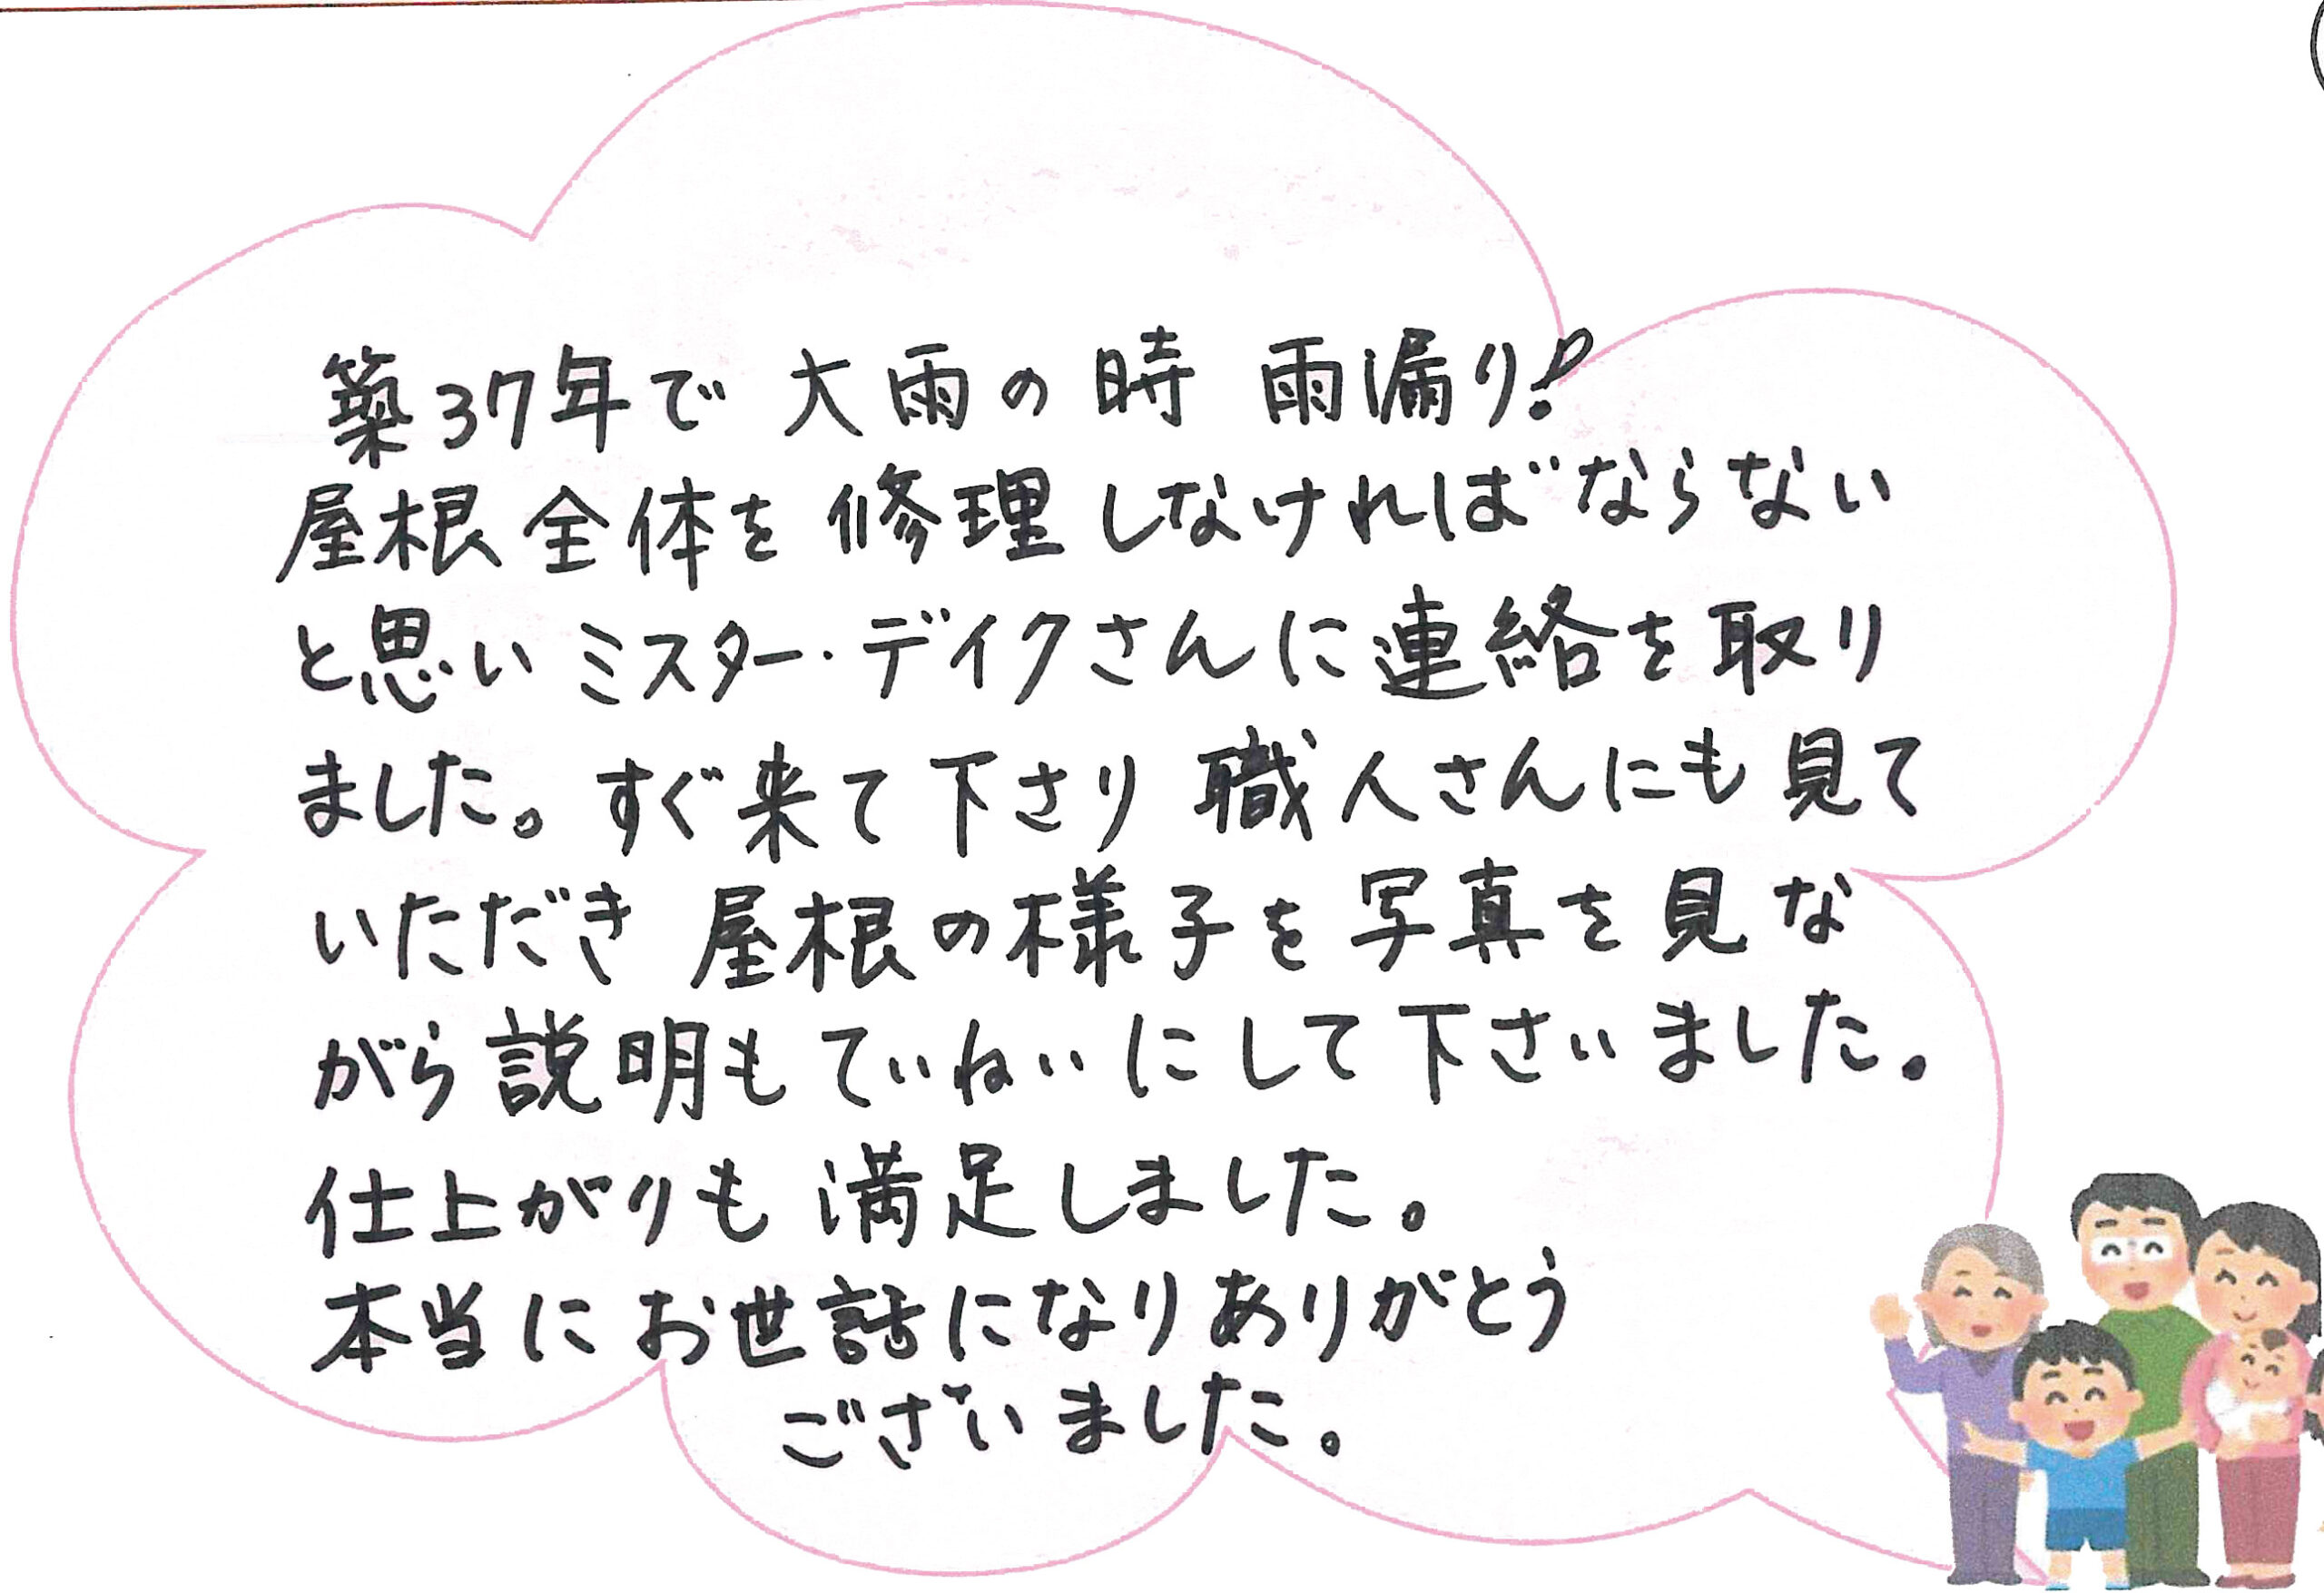 築37年で 大雨の時 雨漏り!
屋根全体を修理しなければならない
と思いミスター・デイクさんに連絡を取り
ました。すぐ来て下さり 職人さんにも見て
いただき 屋根の様子を写真を見な
がら説明もていねいにして下さいました。
仕上がりも 満足しました。
本当にお世話になりありがとう
ございました。